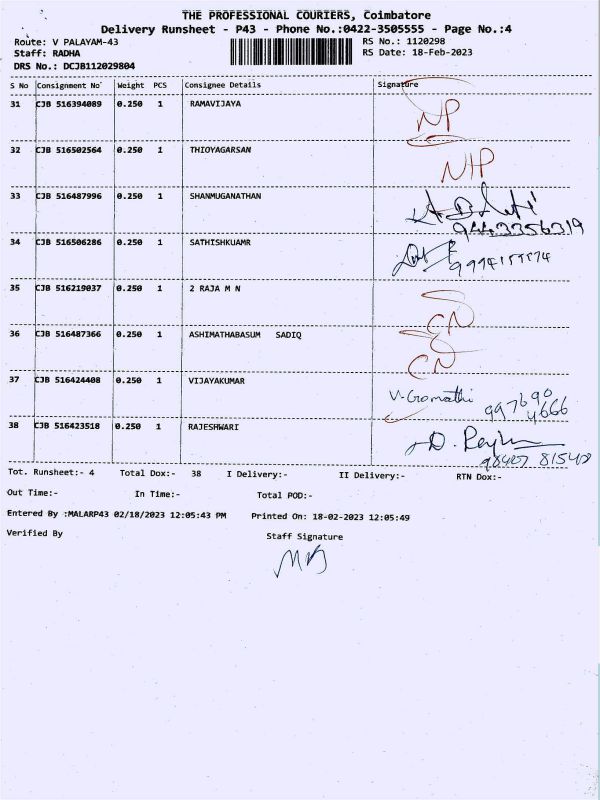 THE PROFESSIONAL COURIERS, Coimbatore
Delivery Runsheet - P43 - Phone No.:0422-3505555 - Page No.:4
Route: V PALAYAM-43 RS No.: 1120298
Staff: RADHA RS Date: 18-Feb-2023
DRS No.: DCJB112029804
S No Consignment No Weight PCS Consignee Details Signature
31 CJB 516394089 0.250 1 RAMAVIJAYA NP
32 CJB 516502564 0.250 1 THIOYAGARSAN NIP
33 CJB 516487996 0.250 1 SHANMUGANATHAN
9443356319
34 CJB 516506286 0.250 1 SATHISHKUAMR
35 CJB 516219037 0.250 1 2 RAJA M N CN
36 CJB 516487366 0.250 1 ASHIMATHABASUM SADIQ CN
37 CJB 516424408 0.250 1 VIJAYAKUMAR V. Gomathi
997690
4666
38 CJB 516423518 0.250 1 RAJESHWARI
98427 81548
Tot. Runsheet:- 4 Total Dox:- 38 I Delivery:- II Delivery:- RTN Dox:-
Out Time:- In Time:- Total POD:-
Entered By :MALARP43 02/18/2023 12:05:43 PM Printed On: 18-02-2023 12:05:49
Verified By Staff Signature